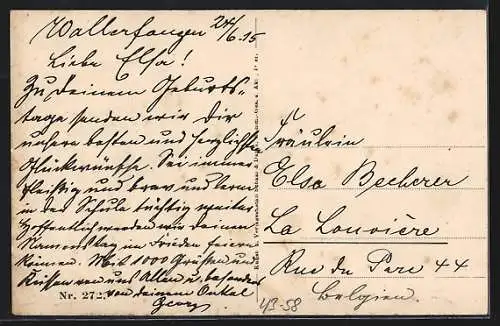 Wallerfangen 24/6.15
Liebe Elsa!
Zu Deinem Geburts-
tage senden wir Dir
unsere besten und herzlichsten
Glückwünsche. Sei immer
fleissig und brav und lern
in der Schule tüchtig weiter
Hoffentlich werden wir Deinen
Namenstag in Frieden feiern
können. Mit 1000 Grüssen und
Küssen von uns Allen u. besonders
von deinem Onkel
Georg
Nr. 272
Fräulein
Elsa Becherer
La Louvière
Rue du Parc 44
Belgien.
43-58